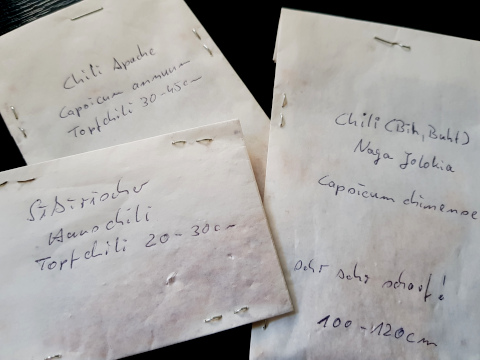 Chili Apache
Capsicum annuum
Topfchili 30-45cm
Sibirischer
Hauschili
Topfchili 20-30cm
Chili (Bih, Buht)
Naga Jolokia
Capsicum chinense
sehr sehr scharf!
100-120cm